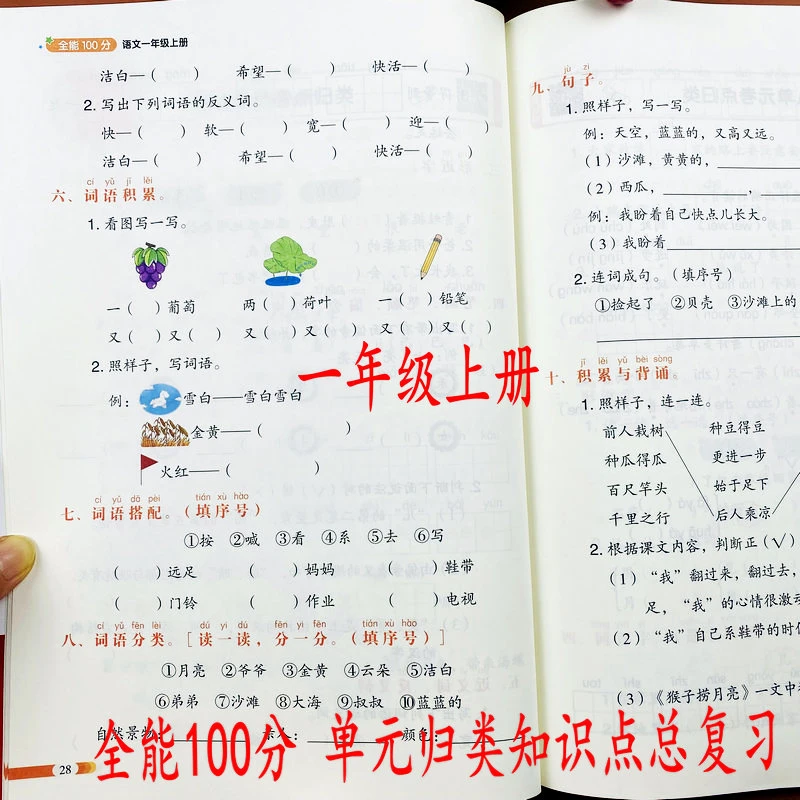 全能100分 语文一年级上册
洁白—( ) 希望—( ) 快活—( )
2. 写出下列词语的反义词。
快—( ) 软—( ) 宽—( ) 迎—( )
洁白—( ) 希望—( ) 快活—( )
cí yǔ jī lěi
六、词语积累。
1. 看图写一写。
一( )葡萄 两( )荷叶 一( )铅笔
又( )又( ) 又( )又( ) 又( )又( )
2. 照样子，写词语。
例： 雪白——雪白雪白
金黄——( )
火红——( )
cí yǔ dā pèi tián xù hào
七、词语搭配。(填序号)
①按 ②喊 ③看 ④系 ⑤去 ⑥写
( )远足 ( )妈妈 ( )鞋带
( )门铃 ( )作业 ( )电视
cí yǔ fēn lèi dú yi dú fēn yi fēn tián xù hào
八、词语分类。[读一读，分一分。(填序号)]
①月亮 ②爷爷 ③金黄 ④云朵 ⑤洁白
⑥弟弟 ⑦沙滩 ⑧大海 ⑨叔叔 ⑩蓝蓝的
自然景物：________ 亲人：________ 颜色：________
28
jù zi
九、句子。
1. 照样子，写一写。
例：天空，蓝蓝的，又高又远。
(1)沙滩，黄黄的，
(2)西瓜，________，
例：我盼着自己快点儿长大。
(3)我盼着
2. 连词成句。(填序号)
①捡起了 ②贝壳 ③沙滩上的
jī lěi yǔ bèi sòng
十、积累与背诵。
1. 照样子，连一连。
前人栽树 种豆得豆
种瓜得瓜 更进一步
百尺竿头 始于足下
千里之行 后人乘凉
2. 根据课文内容，判断正(√)
(1)“我”翻过来，翻过去，
足，“我”的心情很激动
(2)“我”自己系鞋带的时
(3)《猴子捞月亮》一文中
一年级上册
全能100分 单元归类知识点总复习